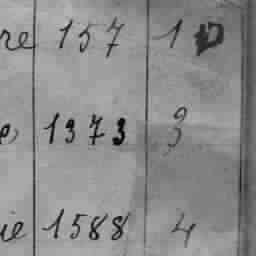 re 157 10
e 1373 3
ie 1588 4